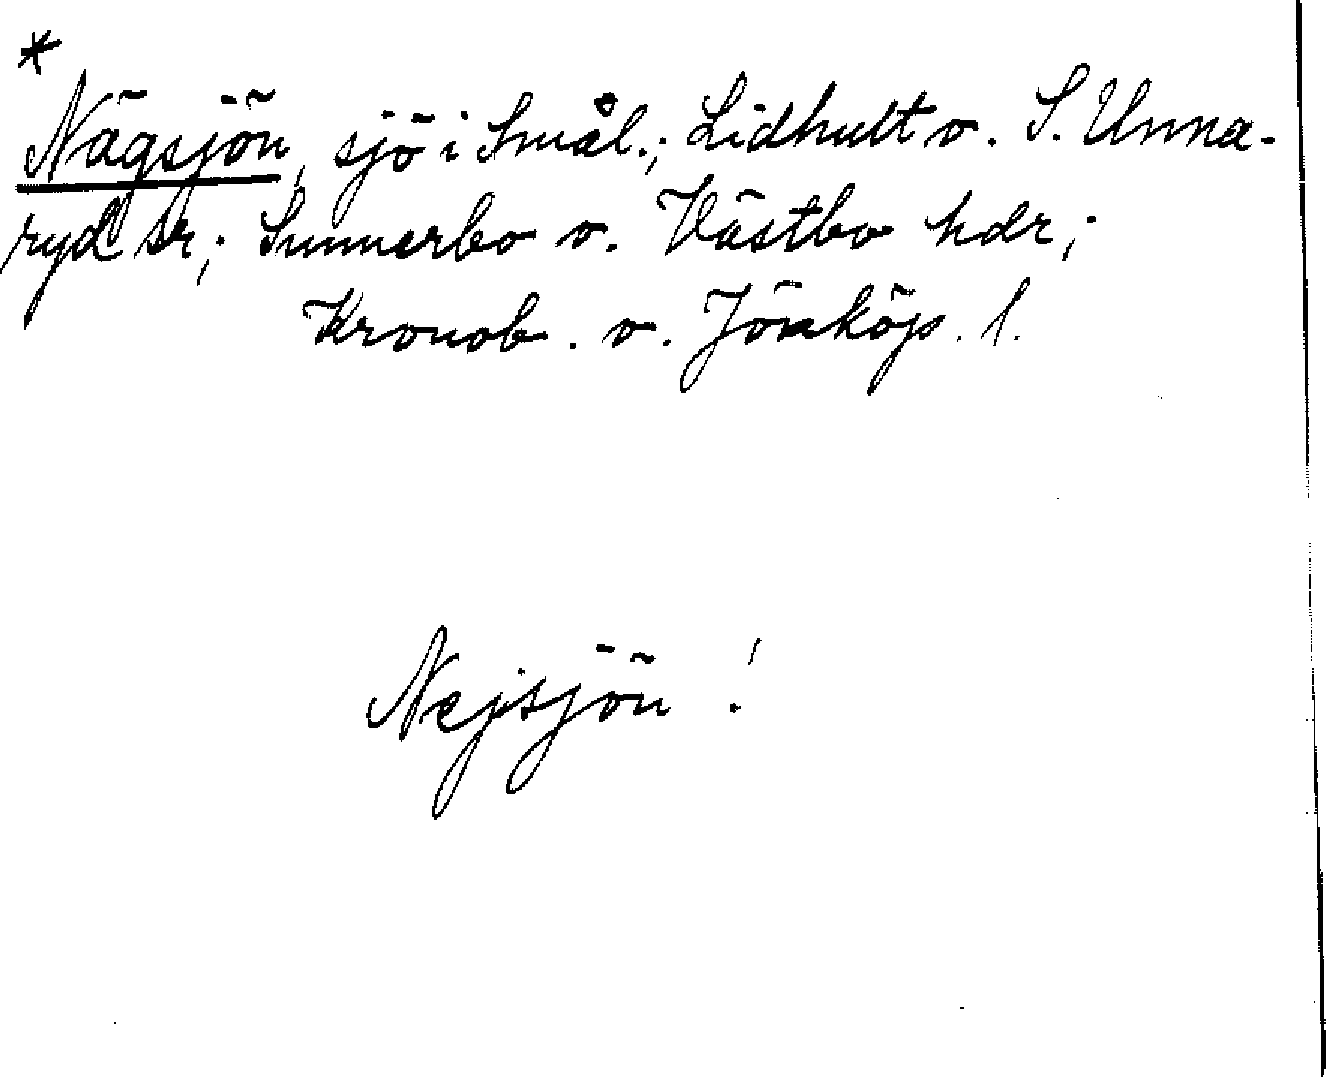 *
Nägsjön, sjö i Smål.; Lidhult o. S. Unna-
ryd sr; Sunnerbo o. Västbo hdr;
Kronob. o. Jönköp. l.
Nejsjön!